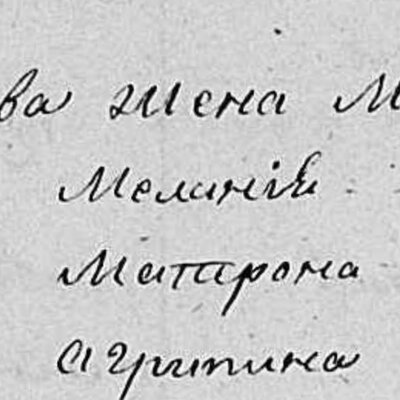 ва жена М
Меланія
Матрона
Агрипина